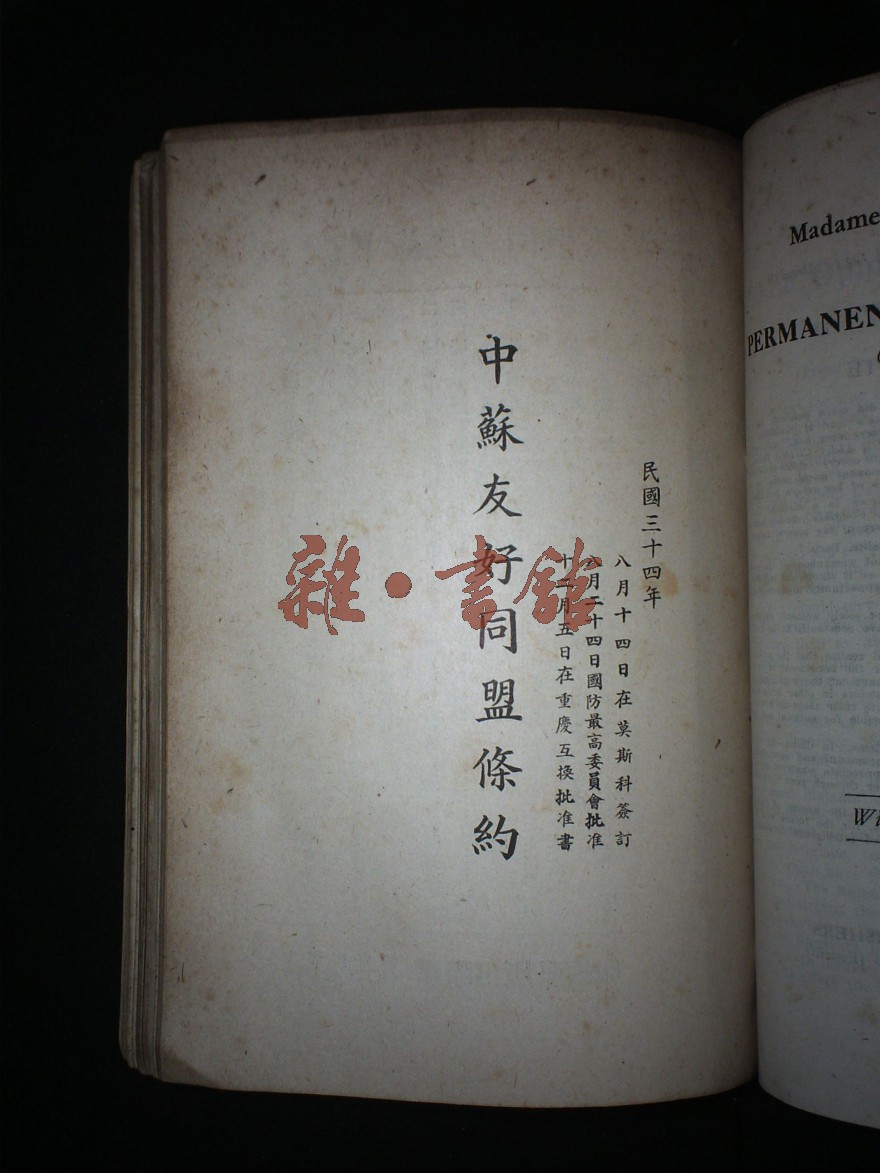 民國三十四年
八月十四日在莫斯科簽訂
八月二十四日國防最高委員會批准
十二月五日在重慶互換批准書
中蘇友好同盟條約
雜·書館
Madame
PERMANEN